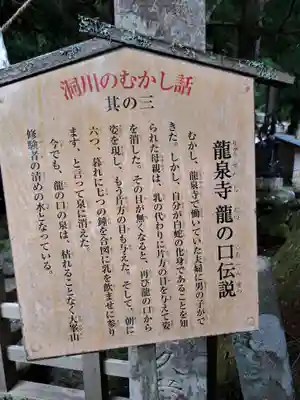 洞川のむかし話
其の三
龍泉寺 龍の口伝説
むかし、龍泉寺で働いていた夫婦に男の子がで
きた。しかし、自分が白蛇の化身であることを知
られた母親は、乳の代わりに片方の目を与えて姿
を消した。その目が無くなると、再び龍の口から
姿を現し、もう片方の目も与えた。そして、朝に
六つ、暮れに七つの鐘を合図に乳を飲ませに参り
ます、と言って泉に消えた。
今でも、龍の口の泉は、枯れることなく大峯山
修験者の清めの水となっている。